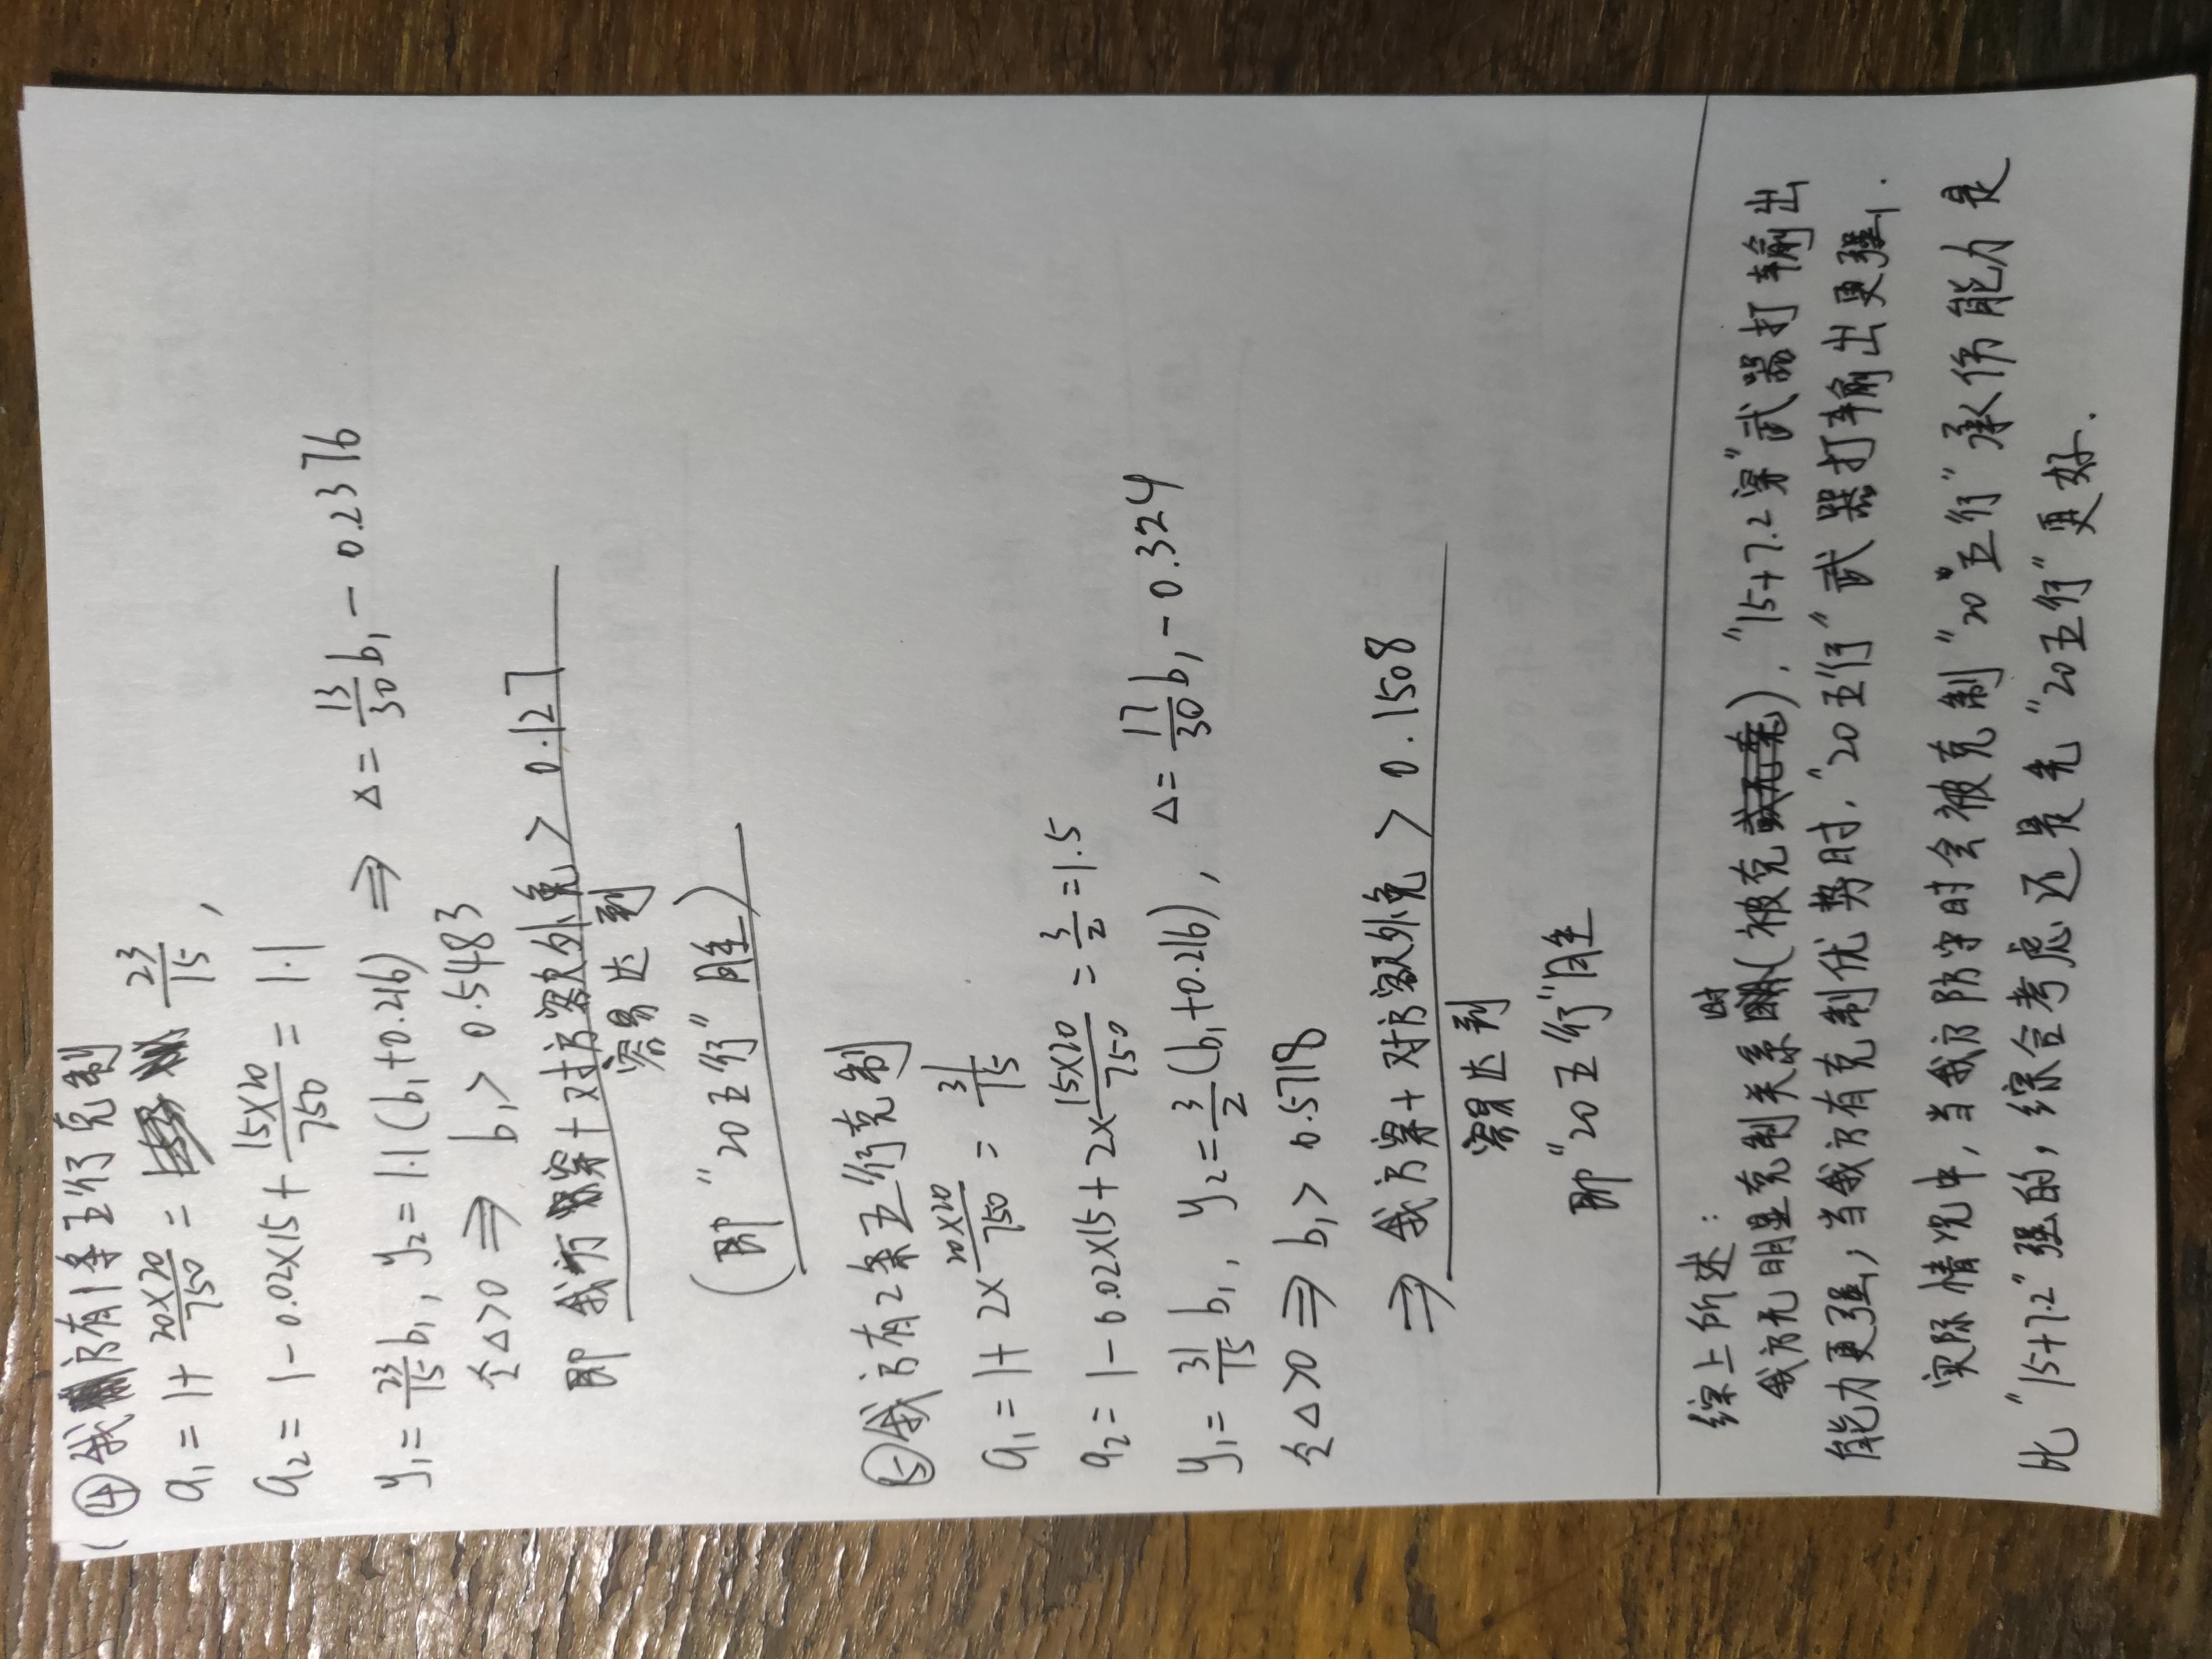 ④我方有1条五行克制
a₁=1+20×20/750=23/15,
a₂=1-0.02×15+15×20/750=1.1
y₁=23/15b₁, y₂=1.1(b₁+0.216) ⇒ Δ=13/30b₁-0.2376
令Δ>0 ⇒ b₁>0.5483
即 我方穿+对方额外免>0.127
容易达到
(即"20五行"胜)
⑤我方有2条五行克制
a₁=1+2×20×20/750=31/15
a₂=1-0.02×15+2×15×20/750=3/2=1.5
y₁=31/15b₁, y₂=3/2(b₁+0.216), Δ=17/30b₁-0.324
令Δ>0 ⇒ b₁>0.5718
⇒ 我方穿+对方额外免>0.1508
容易达到
即"20五行"胜
综上所述:
我方无明显克制关系时(被克),"15+7.2穿"武器打输出
能力更强,当我方有克制优势时,"20五行"武器打输出更强.
实际情况中,当我方防守时会被克制"20五行"承伤能力是
比"15+7.2"强的,综合考虑还是先"20五行"更好.